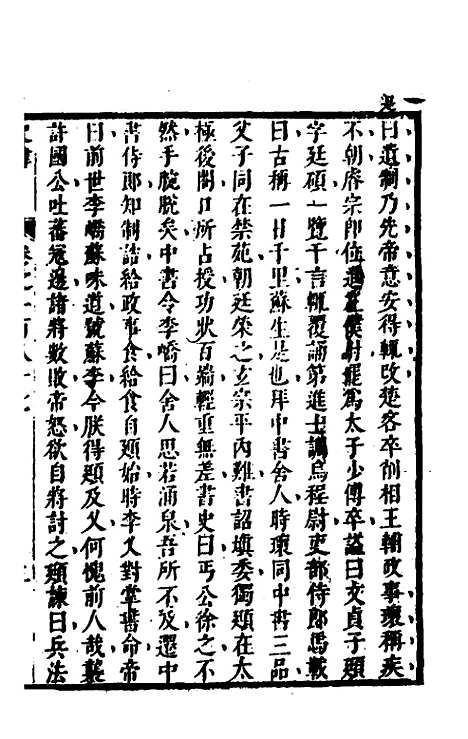 曰遺制乃先帝意安得輒改楚客卒削相王輔政事瓌稱疾
不朝睿宗即位進左僕射罷為太子少傅卒謚曰文貞子頲
字廷碩一覽千言輒覆誦第進士調烏程尉吏部侍郎馬載
曰古稱一日千里蘇生是也拜中書舍人時瓌同中書三品
父子同在禁苑朝廷榮之玄宗平內難書詔填委獨頲在太
極後閣口所占授功狀百端輕重無差書史曰丐公徐之不
然手腕脫矣中書令李嶠曰舍人思若涌泉吾所不及遷中
書侍郎知制誥給政事食給食自頲始時李乂對掌書命帝
曰前世李嶠蘇味道號蘇李今朕得頲及乂何愧前人哉襲
許國公吐蕃寇邊諸將數敗帝怒欲自將討之頲諫曰兵法
卷之一百八十七